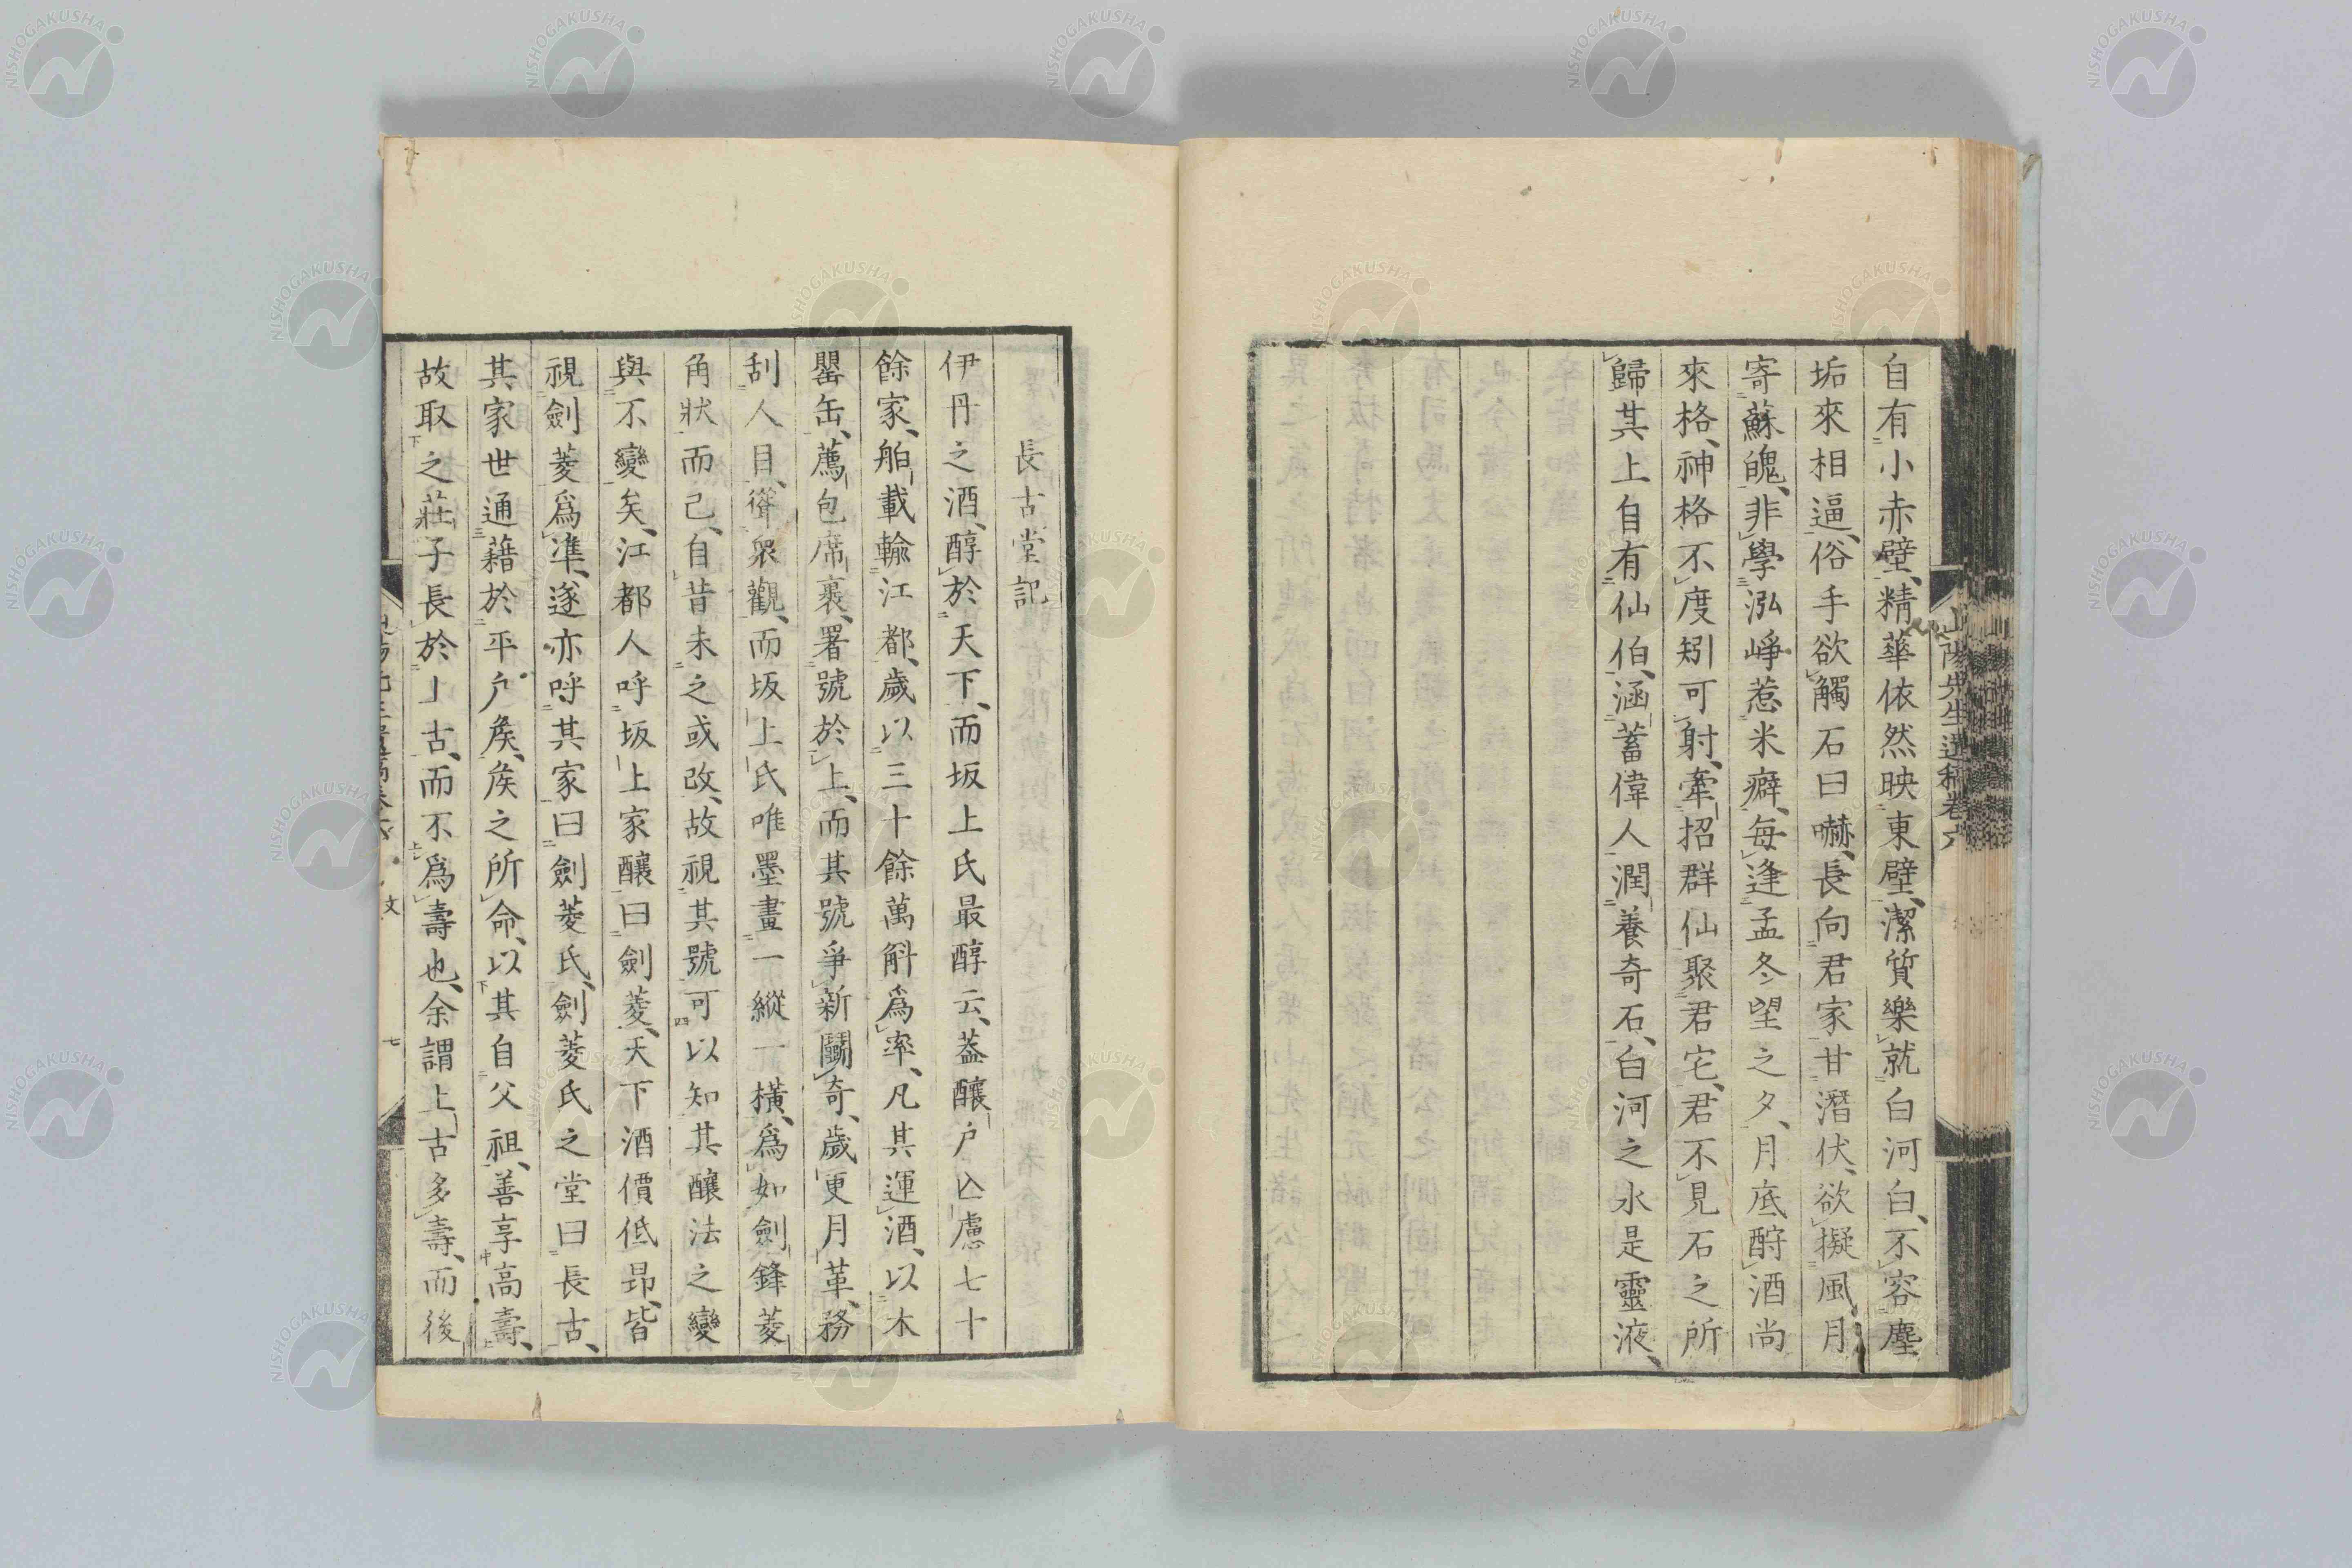 自有小赤壁、精華依然映東壁、潔質樂就白河白、不容塵
垢來相逼、俗手欲觸石曰嚇、長向君家甘潛伏、欲擬風月
寄蘇魄、非學泓崢惹米癖、每逢孟冬望之夕、月底酹酒尚
來格、神格不度矧可射、牽招群仙聚君宅、君不見石之所
歸其上自有仙伯、涵蓄偉人潤養奇石、白河之水是靈液、
山陽先生遺稿卷六
長古堂記
伊丹之酒、醇於天下、而坂上氏最醇云、蓋釀戶亾慮七十
餘家、舶載輸江都、歲以三十餘萬斛爲率、凡其運酒、以木
罌缶、薦包席裹、署號於上、而其號爭新鬬奇、歲更月革、務
刮人目、聳衆觀、而坂上氏唯墨畫一縱一橫、爲如劍鋒菱
角狀而已、自昔未之或改、故視其號可以知其釀法之變
與不變矣、江都人呼坂上家釀曰劍菱、天下酒價低昂、皆
視劍菱爲準、遂亦呼其家曰劍菱氏、劍菱氏之堂曰長古、
其家世通藉於平戶矦、矦之所命、以其自父祖、善享高壽、
故取之莊子長於上古、而不爲壽也、余謂上古多壽、而後
文
七
NISHOGAKUSHA